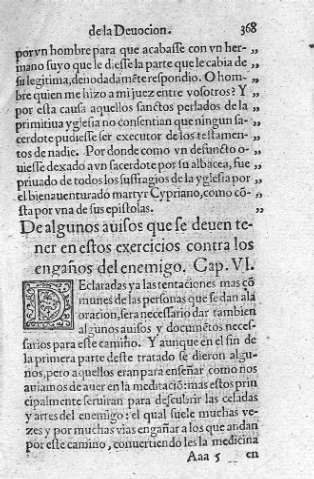 de la Deuocion. 368
por vn hombre para que acabasse con vn her- „
mano suyo que le diesse la parte que le cabia de „
su legitima, denodadamẽte respondio. O hom- „
bre quien me hizo a mi juez entre vosotros? Y „
por esta causa aquellos sanctos perlados de la „
primitiua yglesia no consentian que ningun sa- „
cerdote pudiesse ser executor de los testamen- „
tos de nadie. Por donde como vn defuncto o- „
uiesse dexado a vn sacerdote por su albacea, fue „
priuado de todos los suffragios de la yglesia por „
el bienauenturado martyr Cypriano, como cõ- „
sta por vna de sus epistolas. „
De algunos auisos que se deuen te-
ner en estos exercicios contra los
engaños del enemigo. Cap. VI.
DEclaradas ya las tentaciones mas cõ
munes de las personas que se dan ala
oracion, sera necessario dar tambien
algunos auisos y documẽtos neces-
sarios para este camino. Y aunque en el fin de
la primera parte deste tratado se dieron algu-
nos, pero aquellos eran para enseñar como nos
auiamos de auer en la meditaciõ: mas estos prin
cipalmente seruiran para descubrir las celadas
y artes del enemigo: el qual suele muchas ve-
zes y por muchas vias engañar a los que andan
por este camino, conuertiendo les la medicina
Aaa 5 en